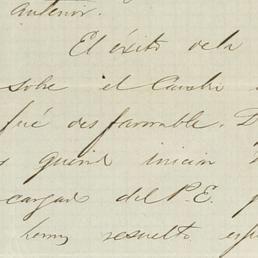 anterior.
El éxito de la
sobre el Cambi
fué desfavorable. D
querid iniciar
cargad del P.E. p
hemos resuelto esp